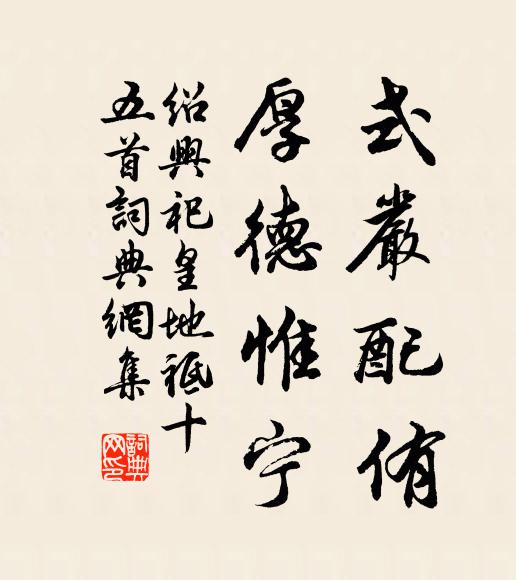 式嚴配侑
厚德惟宁
紹興祀皇地祗十
五首詞典網集
詞典网印